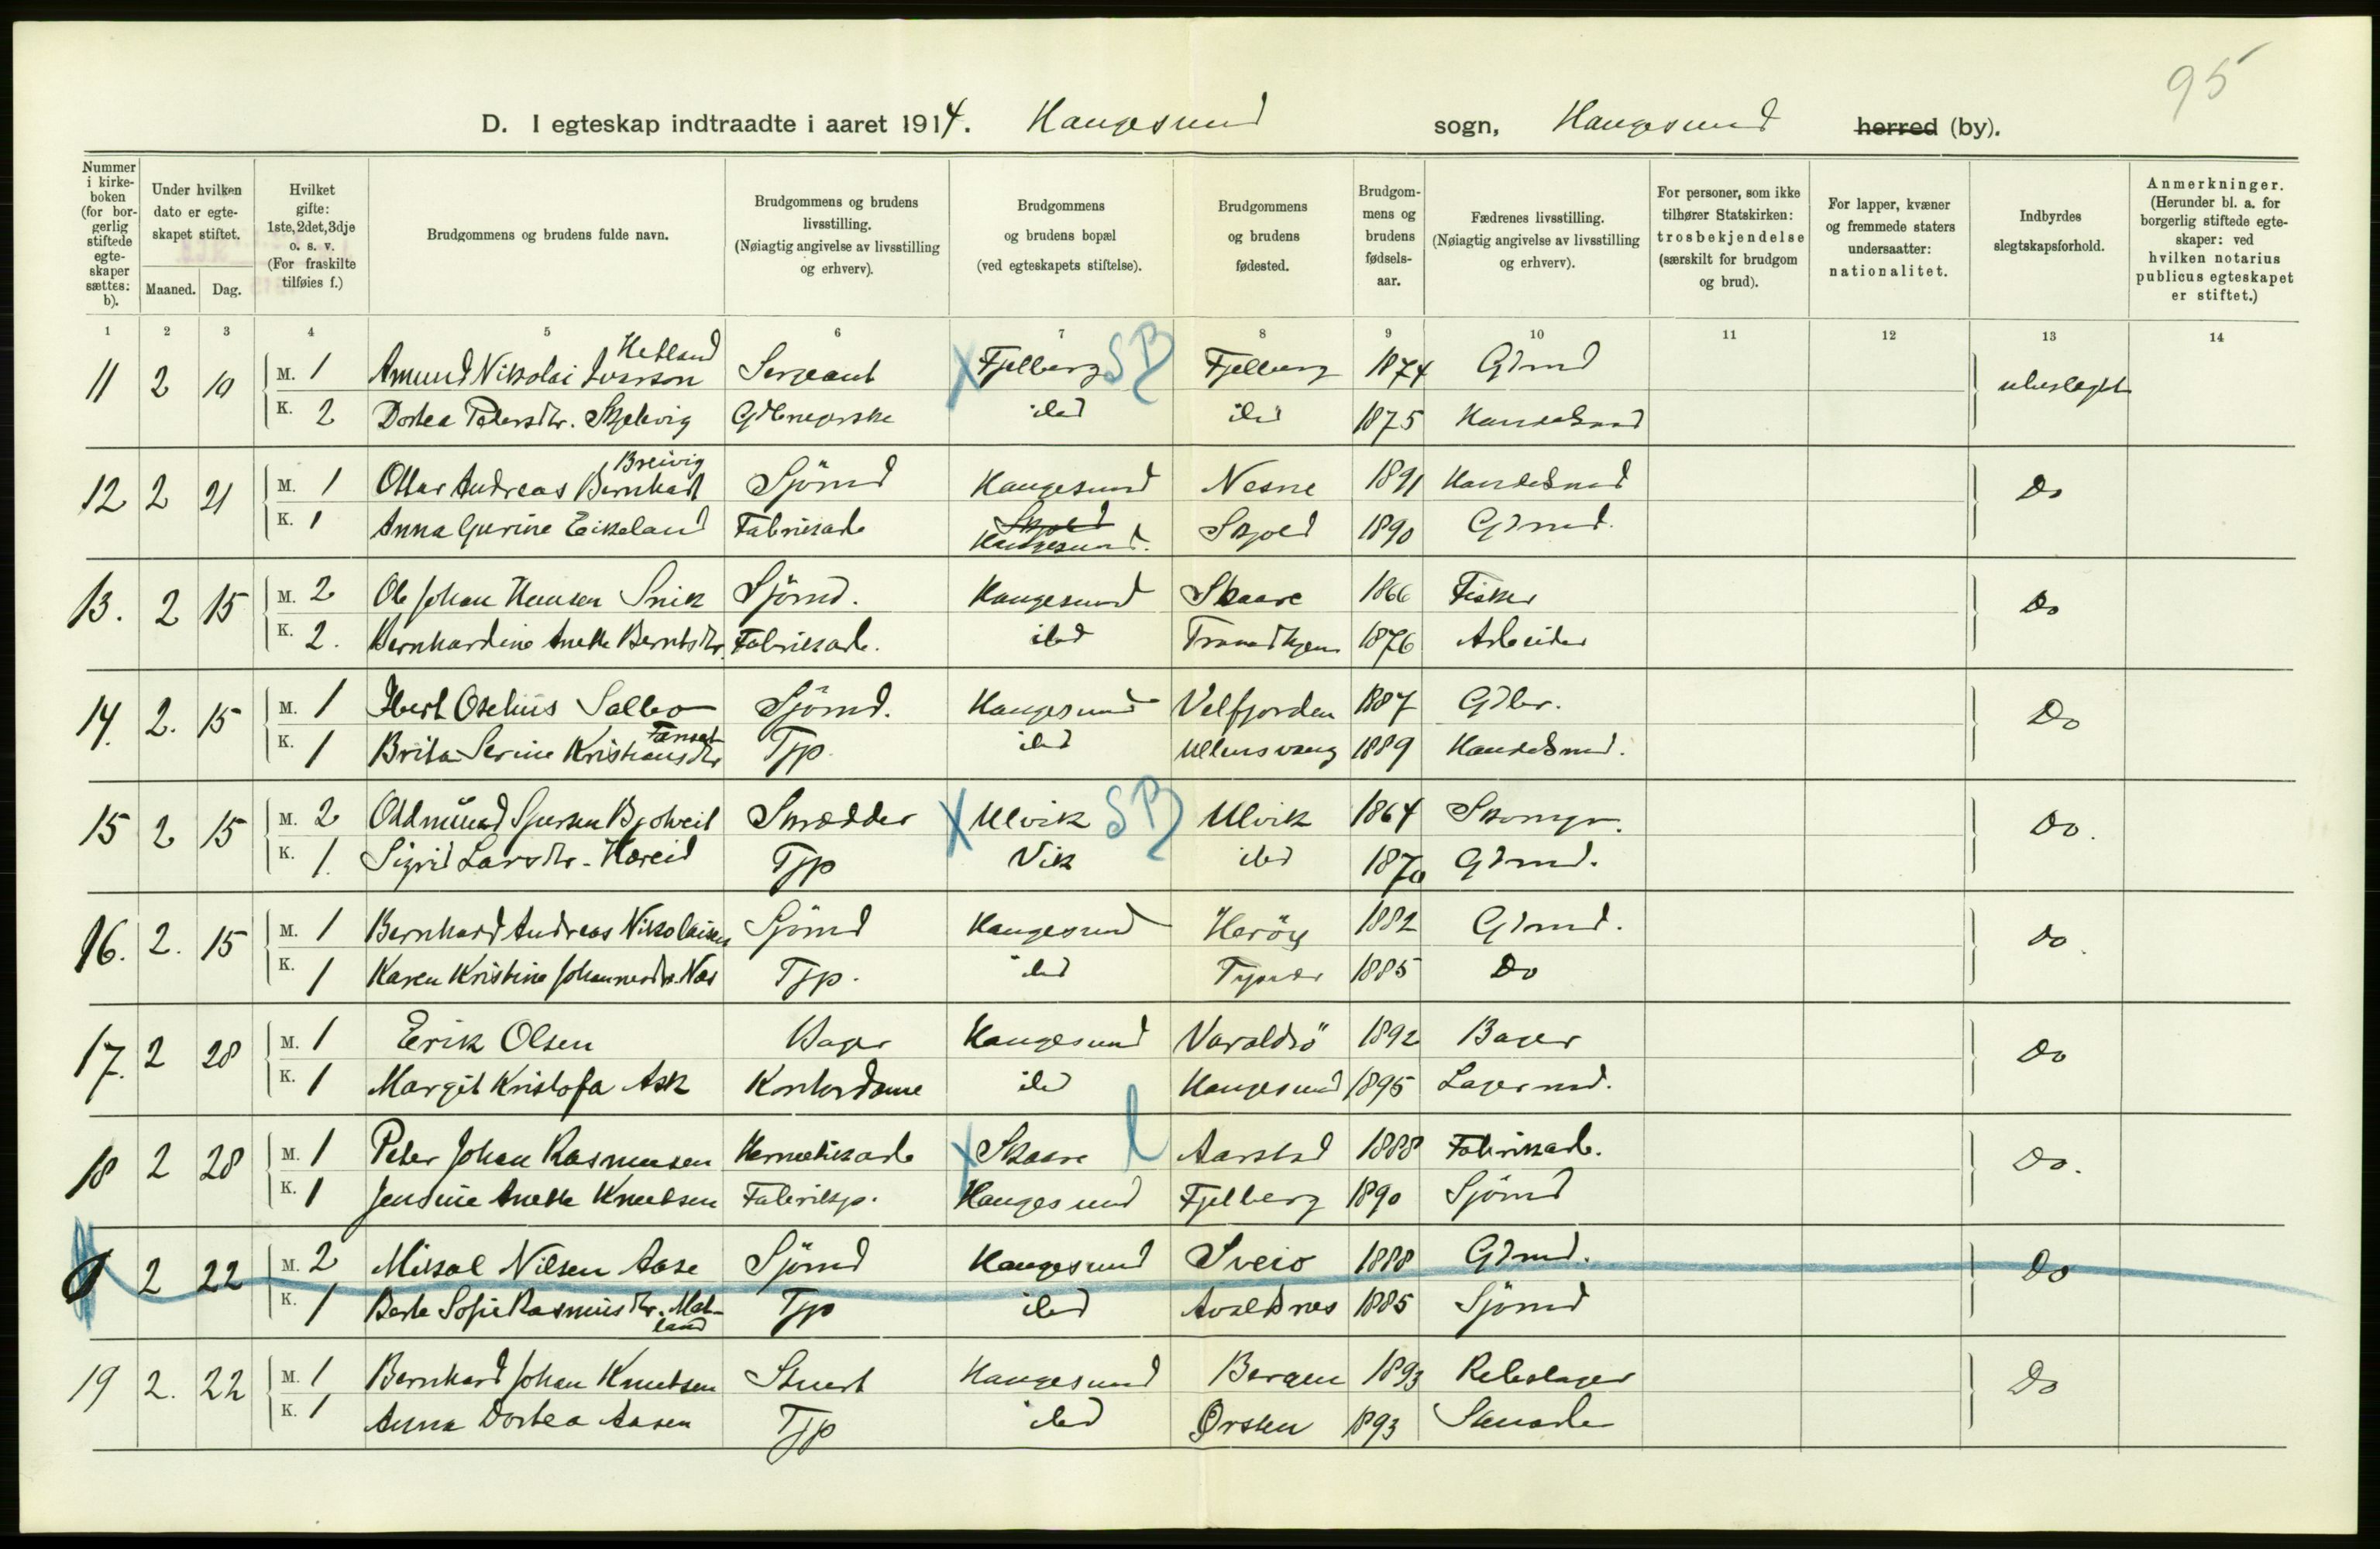 95
D. I egteskap indtraadte i aaret 1914. Haugesund sogn, Haugesund herred (by).
Nummer i kirkeboken (for borgerlig stiftede egteskaper sættes: b).
Under hvilken dato er egteskapet stiftet.
Maaned. Dag.
Hvilket gifte: 1ste, 2det, 3dje o. s. v. (For fraskilte tilføies f.)
Brudgommens og brudens fulde navn.
Brudgommens og brudens livsstilling. (Nøiagtig angivelse av livsstilling og erhverv).
Brudgommens og brudens bopæl (ved egteskapets stiftelse).
Brudgommens og brudens fødested.
Brudgommens og brudens fødselsaar.
Fædrenes livsstilling. (Nøiagtig angivelse av livsstilling og erhverv).
For personer, som ikke tilhører Statskirken: trosbekjendelse (særskilt for brudgom og brud).
For lapper, kvæner og fremmede staters undersaatter: nationalitet.
Indbyrdes slegtskapsforhold.
Anmerkninger. (Herunder bl. a. for borgerlig stiftede egteskaper: ved hvilken notarius publicus egteskapet er stiftet.)
1 2 3 4 5 6 7 8 9 10 11 12 13 14
Hetland
11 2 10 M. 1 Amund Nikolai Iversen Sergeant X Fjelberg SB Fjelberg 1874 Gdmd ubeslegtet
K. 2 Dortea Petersdtr. Skjelvig ibd ibd 1875 Handelsmd
Breivig
12 2 21 M. 1 Ottar Andreas Bernhard Sjömd Haugesund Nesne 1891 Handelsmd Do
K. 1 Anna Gurine Eikeland Fabrikarb Skjold Haugesund. Skjold 1890 Gdmd.
13. 2 15 M. 2 Ole Johan Hansen Snik Sjömd. Haugesund Skaare 1866 Fisker Do
K. 2. Bernhardine Anette Berntsdtr. Fabrikarb. ibd Trondhjem 1876 Arbeider
14. 2. 15 M. 1 Oselius Salbo Sjömd. Haugesund Velfjorden 1887 Gdbr. Do
K. 1 Brita Serine Kristiansdtr Tjp. ibd Ullensvang 1889 Handelsmd.
15 2 15 M. 2 Oddmund Sjursen Skrædder X Ulvik SB Ulvik 1864 Skomgr. Do.
K. 1. Sigrid Larsdtr. Hæreid Tjp Vik ibd 1870 Gdmd.
16. 2. 15 M. 1 Bernhard Andreas Nikolaisen Sjömd Haugesund Heröy 1882 Gdmd. Do.
K. 1 Karen Kristine Johannesdtr. Næs Tjp. ibd Tysvær 1885 Do
17. 2 28 M. 1 Erik Olsen Bager Haugesund Varaldsö 1892 Bager Do
K. 1 Margit Kristofa Ask Kontordame ibd Haugesund 1895 Lagermd.
18 2 28 M. 1 Peter Johan Rasmussen Hermetikarb X Skaare l Aarstad 1888 Fabrikarb. Do.
K. 1 Jensine Anette Knutsen Fabrikp. Haugesund Fjelberg 1890 Sjömd
2 22 M. 2 Mikal Nilsen Aase Sjömd Haugesund Sveio 1888 Gdmd. Do
K. 1 Berte Sofie Rasmusdtr. Mat- Tjp ibd Avaldsnes 1885 Sjömd
land
19 2. 22 M. 1 Bernhard Johan Knutsen Stuert Haugesund Bergen 1893 Rebslager Do
K. 1 Anna Dortea Aasen Tjp ibd Ørsten 1893